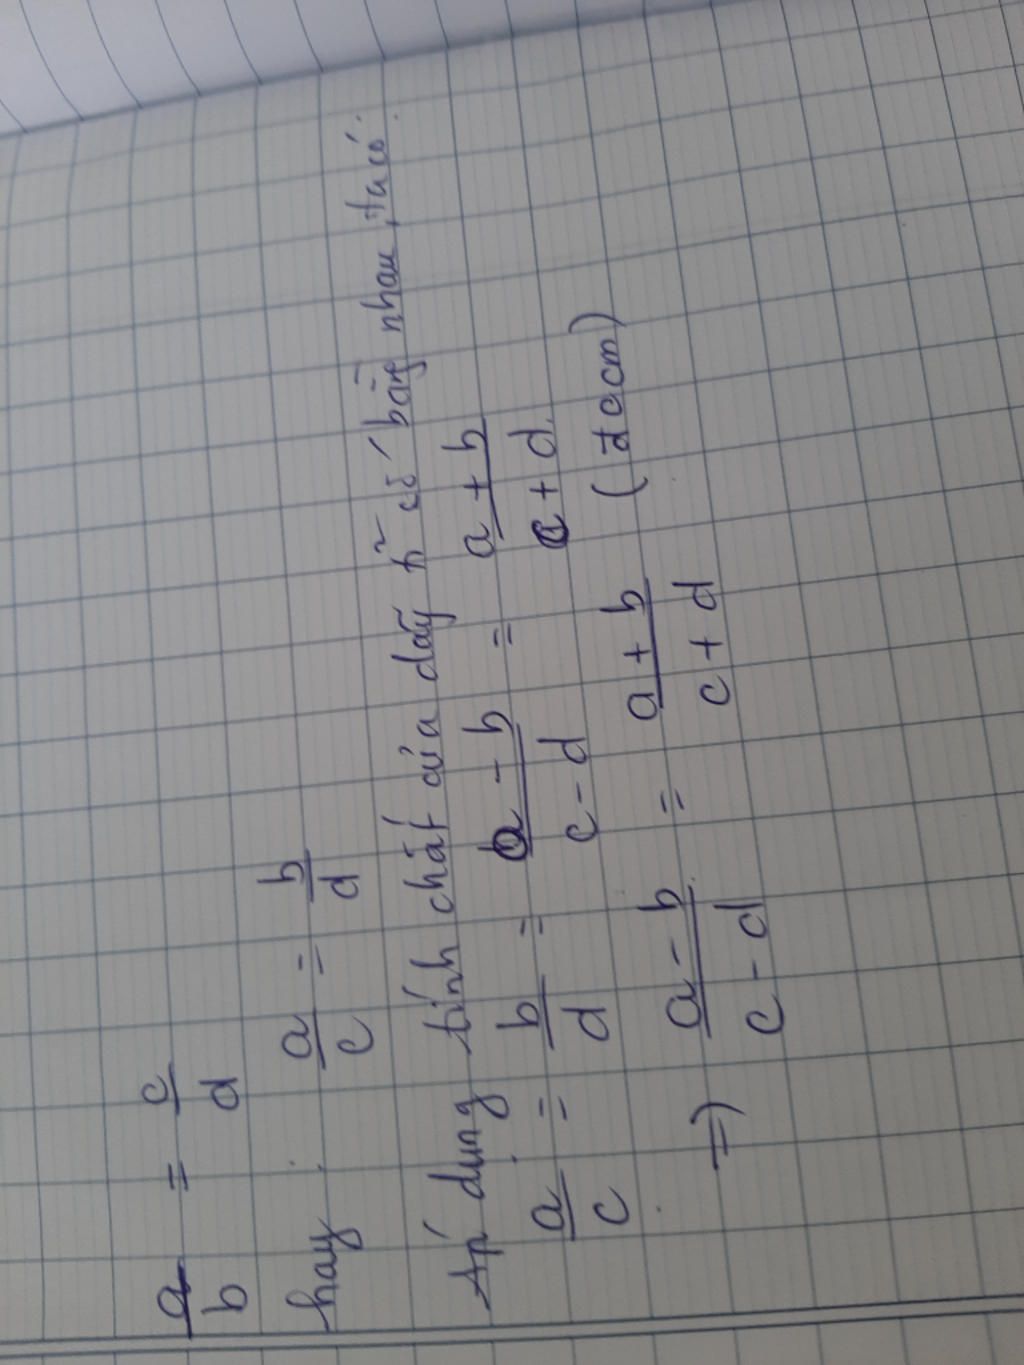 a/b = c/d
hay a/c = b/d
Áp dụng tính chất của dãy tỉ số bằng nhau, ta có:
a/c = b/d = a - b/c - d = a + b/c + d
=> a - b/c - d = a + b/c + d (đpcm)